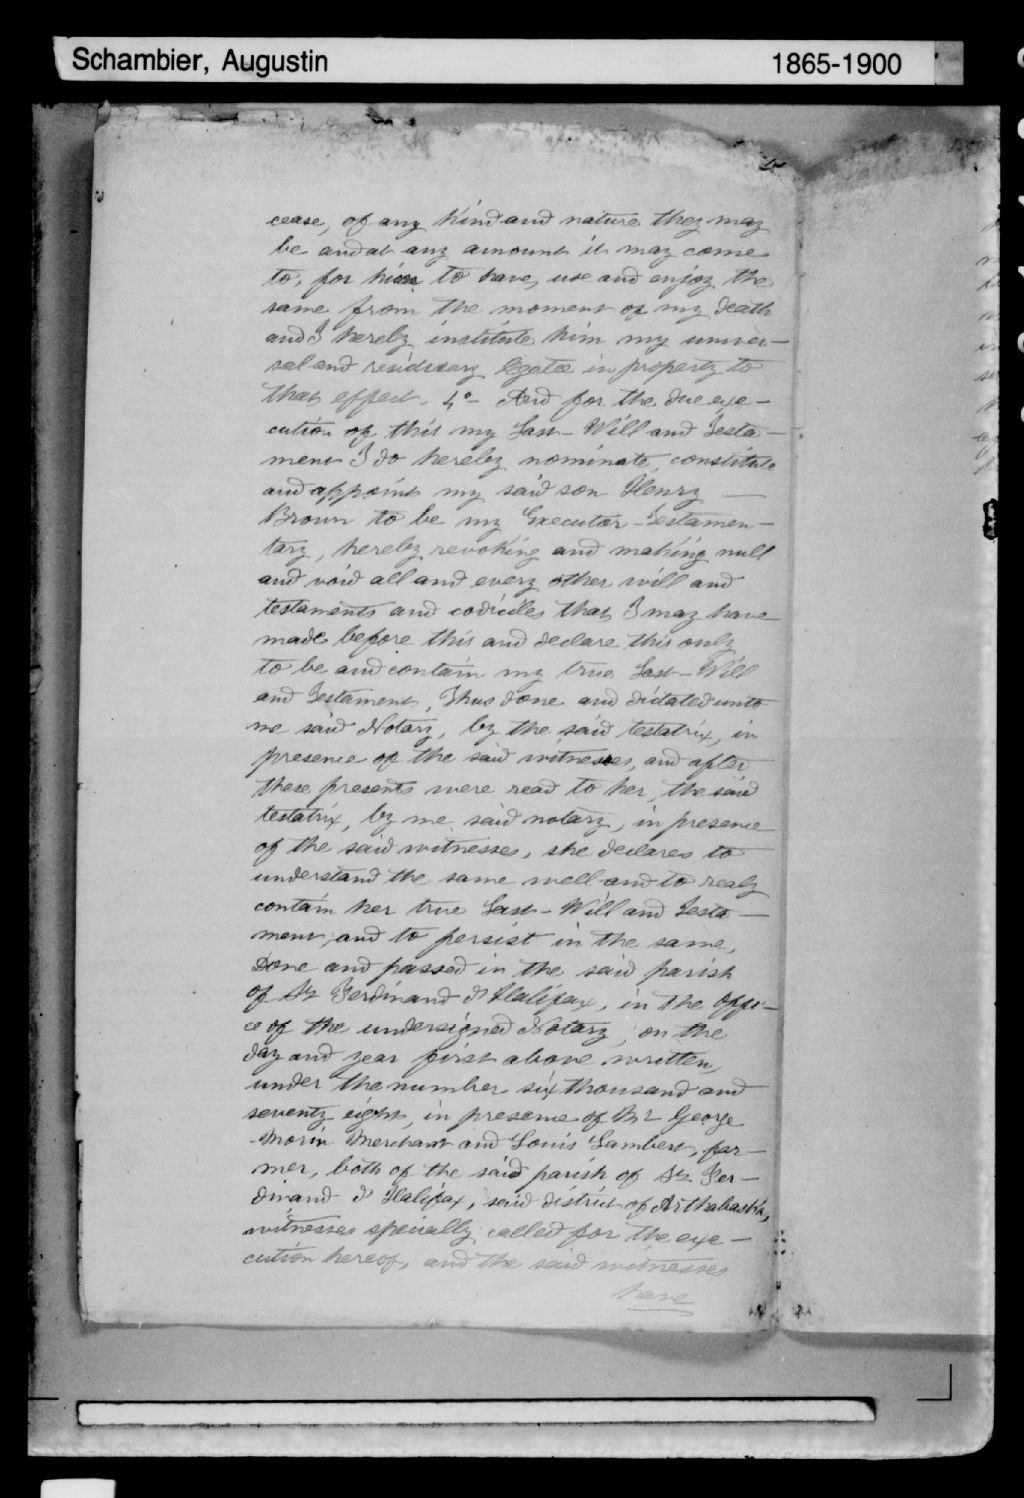 Schambier, Augustin 1865-1900
cease, of any kind and nature they may
be and at any amount it may come
to, for him to have, use and enjoy the
same from the moment of my death
and I hereby institute him my univer-
sal and residuary legatee in property to
that effect. 4°- And for the due exe-
cution of this my Last-Will and Testa-
ment I do hereby nominate, constitute
and appoint my said son Henry —
Brown to be my Executor-Testamen-
tary, hereby revoking and making null
and void all and every other will and
testaments and codiciles that I may have
made before this and declare this only
to be and contain my true Last-Will
and Testament, Thus done and dictated unto
me said Notary, by the said testatrix, in
presence of the said witnesses, and after
these presents were read to her, the said
testatrix, by me said notary, in presence
of the said witnesses, she declares to
understand the same well and to realy
contain her true Last-Will and Testa-
ment, and to persist in the same,
Done and passed in the said parish
of St Ferdinand d'Halifax, in the offi-
ce of the undersigned Notary, on the
day and year first above written,
under the number six thousand and
seventy eight, in presence of Mr George
Morin Merchant and Louis Lambert, far-
mer, both of the said parish of St Fer-
dinand d'Halifax, said district of Arthabaska,
witnesses specially called for the exe-
cution hereof, and the said witnesses
have